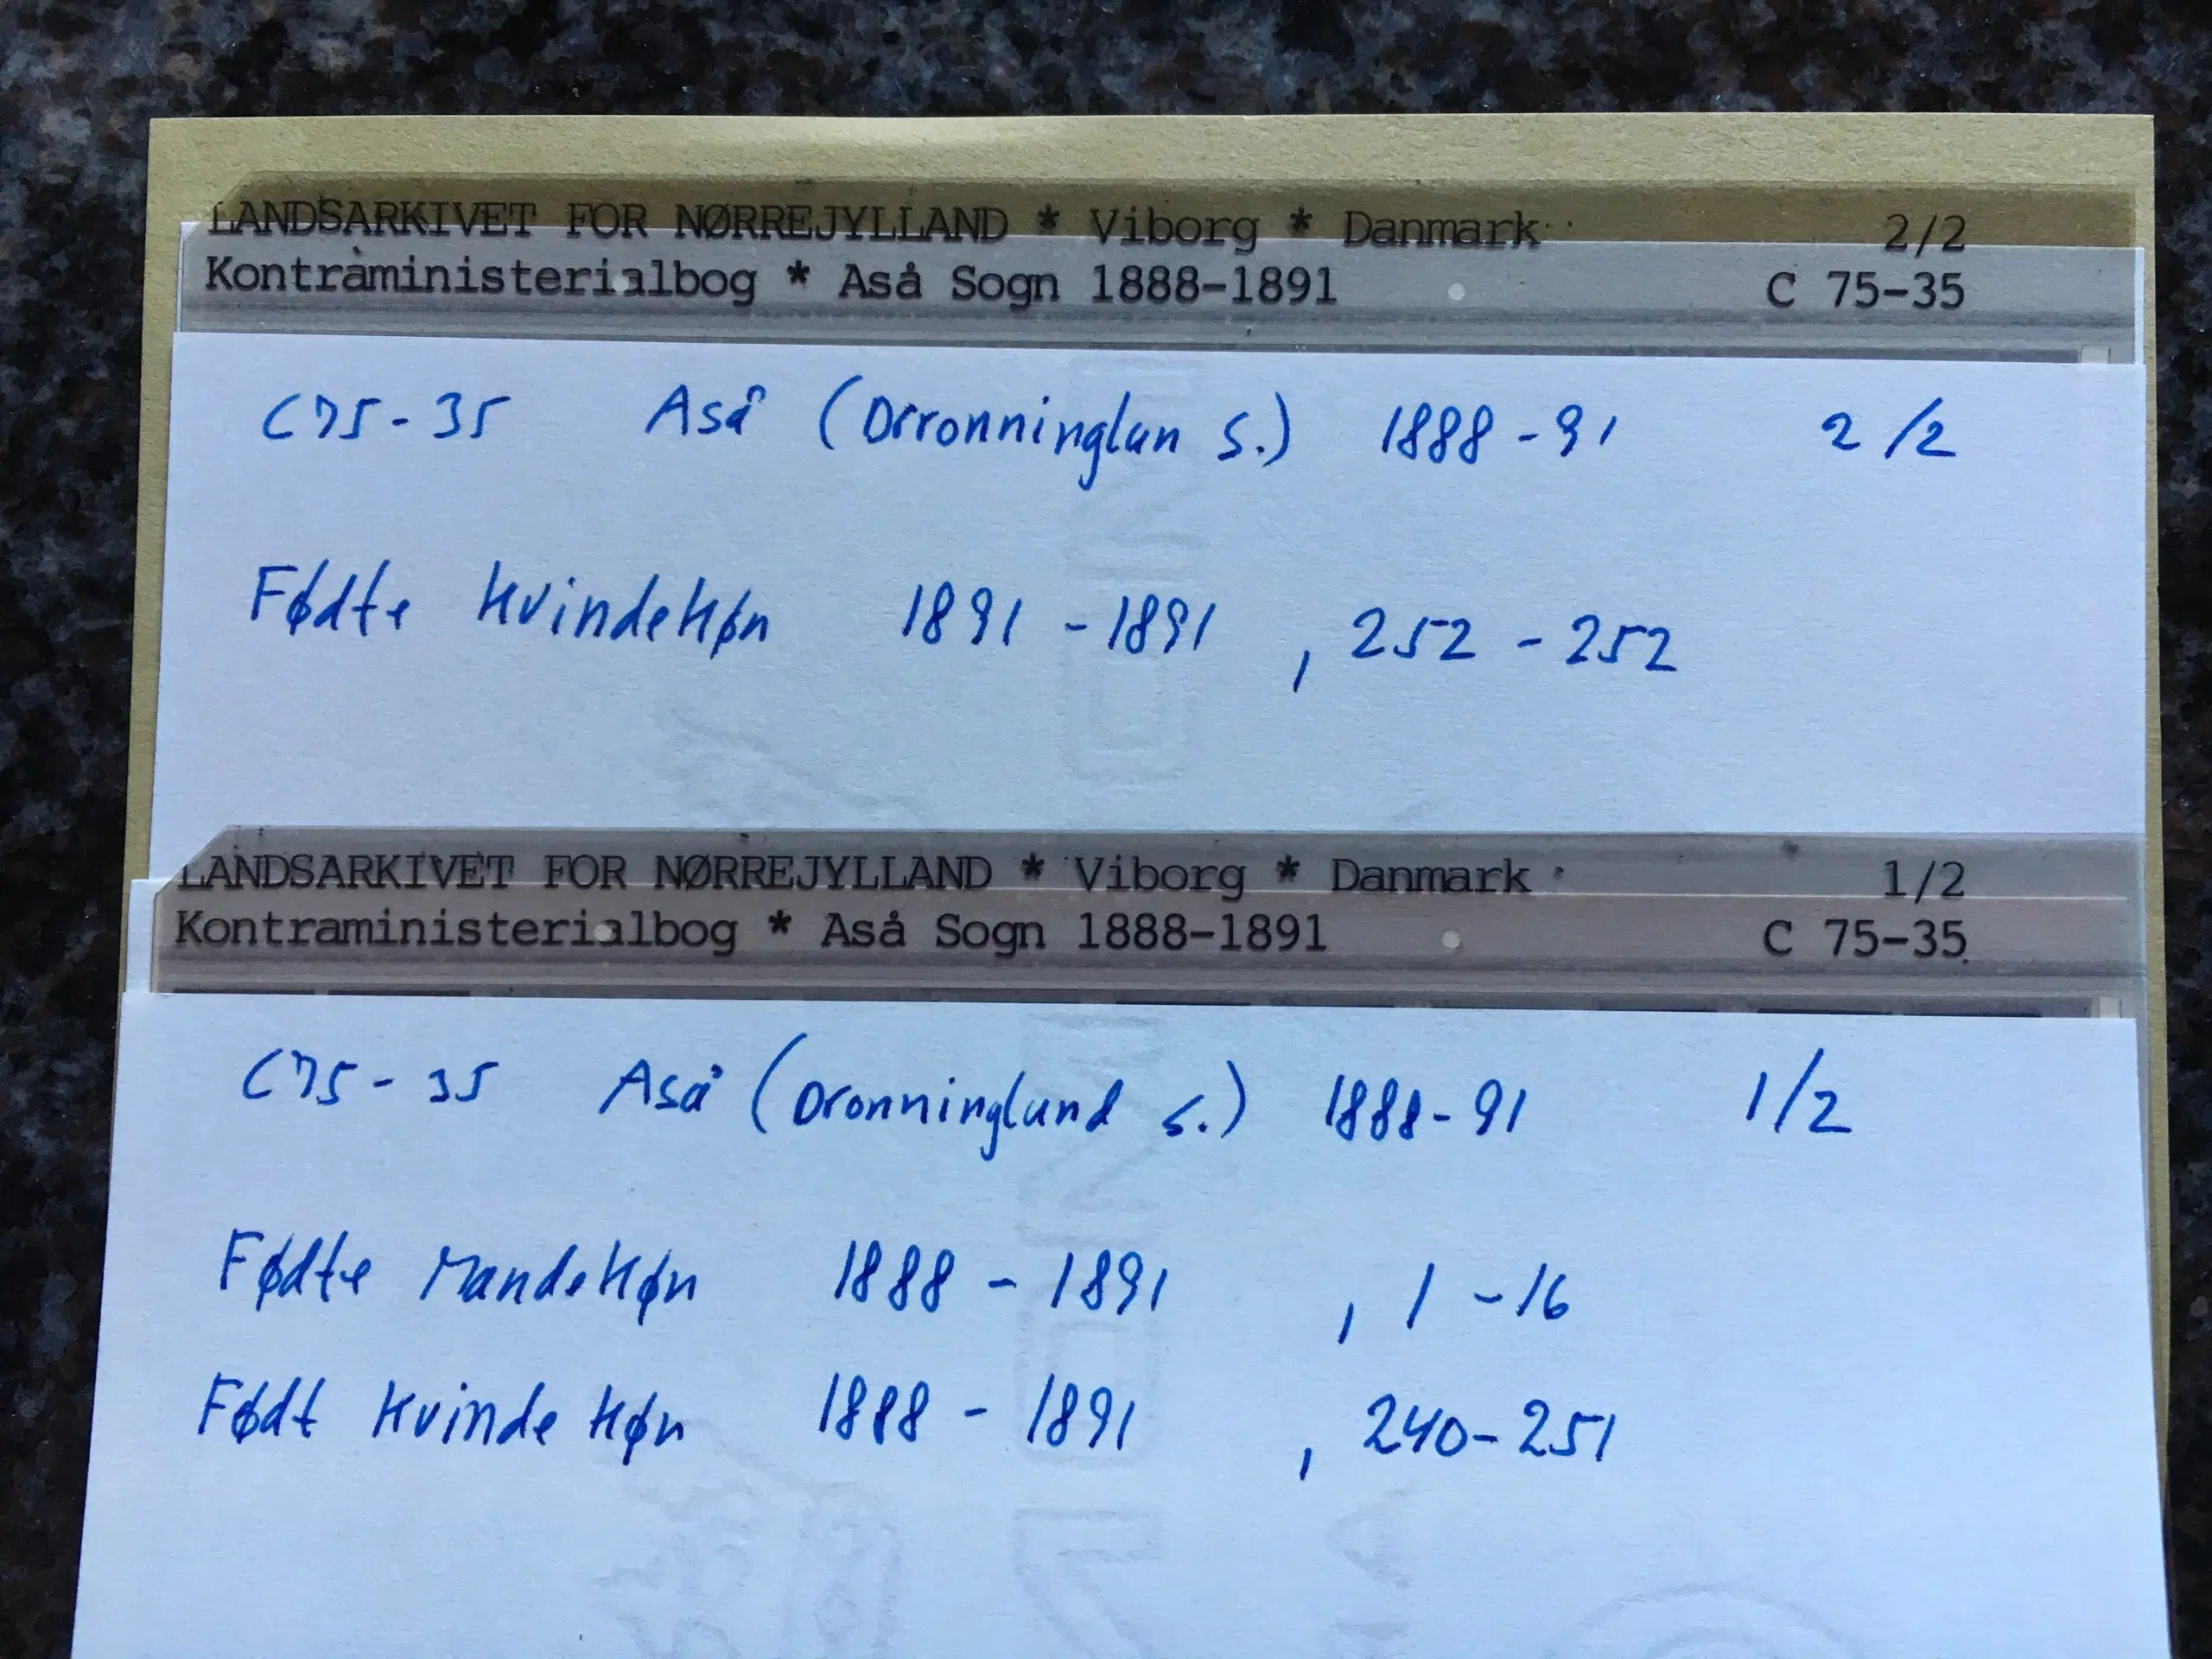 LANDSARKIVET FOR NØRREJYLLAND * Viborg * Danmark 2/2
Kontraministerialbog * Aså Sogn 1888-1891 C 75-35
C75-35 Aså (Drronninglun S.) 1888-91 2/2
Fødte Kvindekøn 1891-1891 , 252-252
LANDSARKIVET FOR NØRREJYLLAND * Viborg * Danmark 1/2
Kontraministerialbog * Aså Sogn 1888-1891 C 75-35
C75-35 Aså (Dronninglund S.) 1888-91 1/2
Fødte Mandekøn 1888-1891 , 1-16
Født Kvindekøn 1888-1891 , 240-251